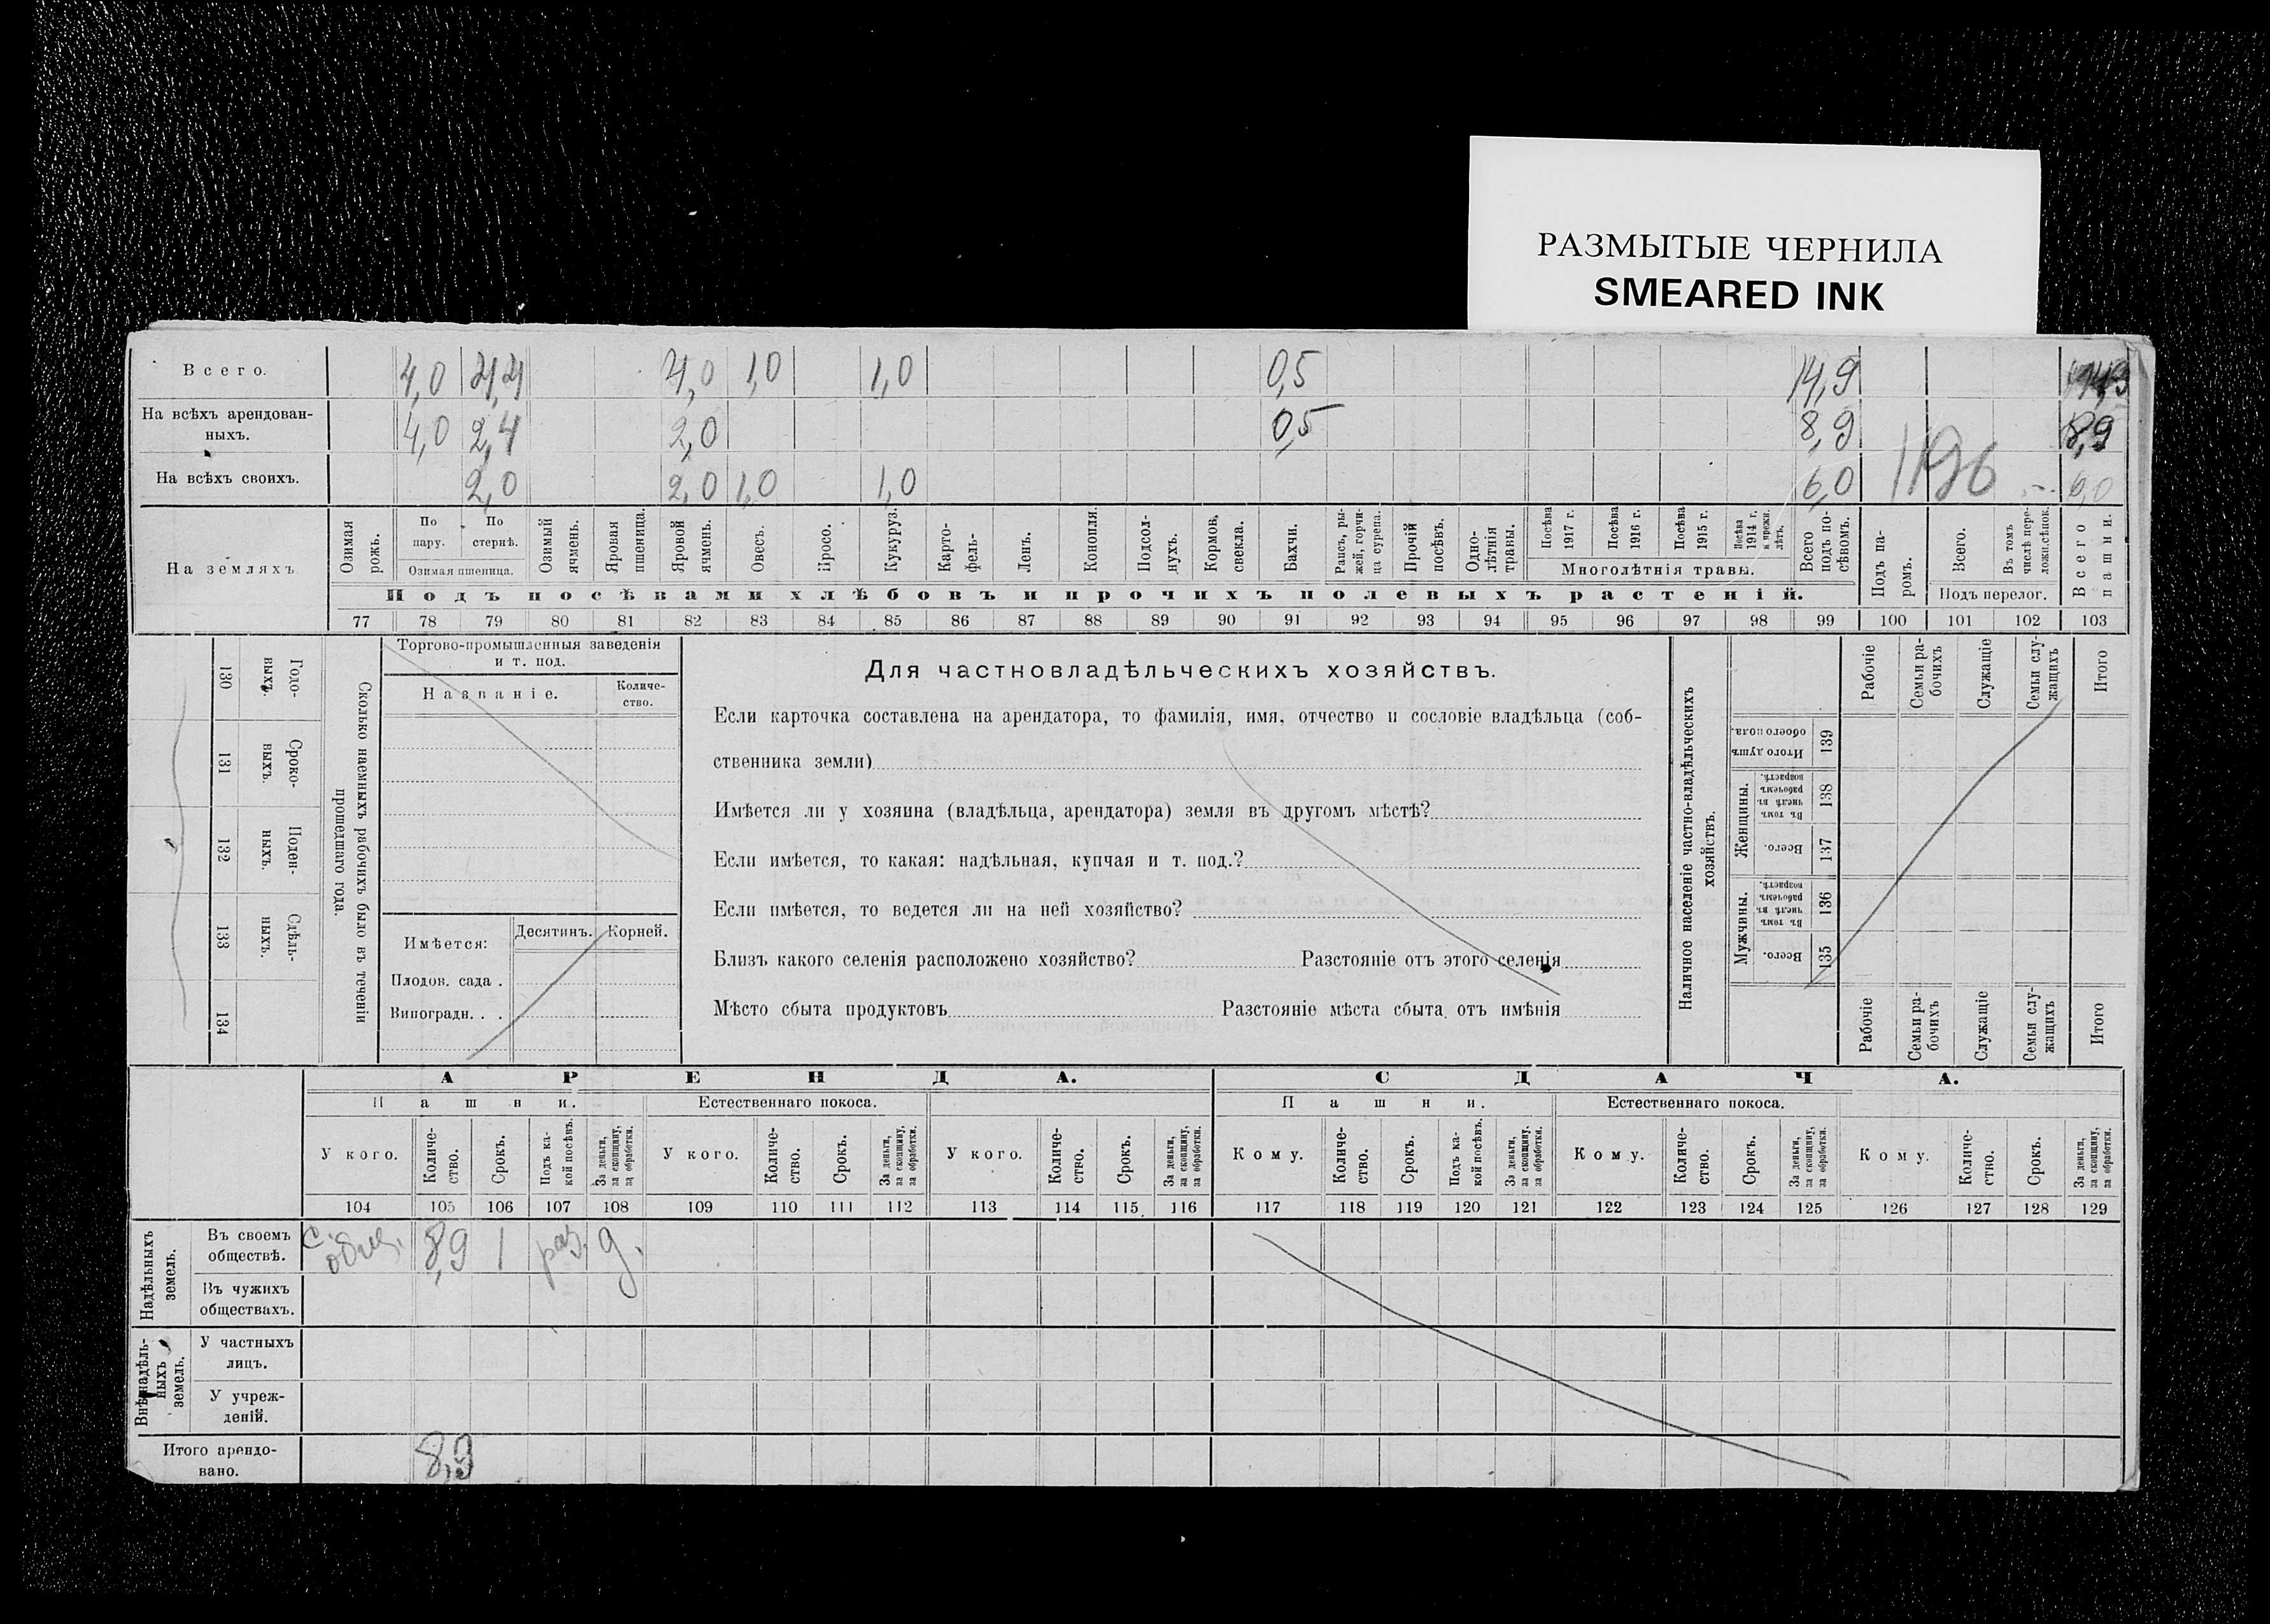 РАЗМЫТЫЕ ЧЕРНИЛА
SMEARED INK
Всего. 4,0 4,4 4,0 1,0 1,0 0,5 14,9 14,9
На всѣхъ арендован-
ныхъ. 4,0 2,4 2,0 0,5 8,9 8,9
На всѣхъ своихъ. 2,0 2,0 1,0 1,0 6,0 6,0
1196
На земляхъ
Озимая рожь.
По пару.
По стернѣ.
Озимая пшеница.
Озимый ячмень.
Яровая пшеница.
Яровой ячмень.
Овесъ.
Просо.
Кукуруз.
Карто-
фель-
Ленъ.
Конопля.
Подсол-
нухъ.
Кормов. свекла.
Бахчи.
Рапсъ, ры-
жей, горчи-
ца сурепа.
Прочій посѣвъ.
Одно-
лѣтнія травы.
Посѣва 1917 г.
Посѣва 1916 г.
Посѣва 1915 г.
Посѣва 1914 г. и прежн. лѣтъ.
Многолѣтнія травы.
Всего подъ по-
сѣвомъ.
Подъ па-
ромъ.
Всего.
Въ томъ числѣ пере-
ложн.сѣнок.
Подъ перелог.
Всего пашни.
Подъ посѣвами хлѣбовъ и прочихъ полевыхъ растеній.
77 78 79 80 81 82 83 84 85 86 87 88 89 90 91 92 93 94 95 96 97 98 99 100 101 102 103
130 Годо-
выхъ.
131 Сроко-
выхъ.
132 Поден-
ныхъ.
133 Сдѣль-
ныхъ.
134
Сколько наемныхъ рабочихъ было въ теченіи
прошедшаго года.
Торгово-промышленныя заведенія
и т. под.
Названіе.
Количе-
ство.
Имѣется:
Десятинъ. Корней.
Плодов. сада .
Виноградн. . .
Для частновладѣльческихъ хозяйствъ.
Если карточка составлена на арендатора, то фамилія, имя, отчество и сословіе владѣльца (соб-
ственника земли)
Имѣется ли у хозяина (владѣльца, арендатора) земля въ другомъ мѣстѣ?
Если имѣется, то какая: надѣльная, купчая и т. под.?
Если имѣется, то ведется ли на ней хозяйство?
Близъ какого селенія расположено хозяйство? Разстояніе отъ этого селенія
Мѣсто сбыта продуктовъ Разстояніе мѣста сбыта отъ имѣнія
Наличное населеніе частно-владѣльческихъ
хозяйствъ.
Рабочіе
Семьи ра-
бочихъ
Служащіе
Семьи слу-
жащихъ
Итого
Итого душъ обоего пола. 139
Женщины.
Въ томъ числѣ въ рабочемъ возрастѣ. 138
Всего. 137
Мужчины.
Въ томъ числѣ въ рабочемъ возрастѣ. 136
Всего. 135
Рабочіе
Семьи ра-
бочихъ
Служащіе
Семьи слу-
жащихъ
Итого
АРЕНДА. СДАЧА.
Пашни. Естественнаго покоса. Пашни. Естественнаго покоса.
У кого.
Количе-
ство.
Срокъ.
Подъ ка-
кой посѣвъ.
За деньги, за скопщину, за обработки.
У кого.
Количе-
ство.
Срокъ.
За деньги, за скопщину, за обработки.
У кого.
Количе-
ство.
Срокъ.
За деньги, за скопщину, за обработки.
Кому.
Количе-
ство.
Срокъ.
Подъ ка-
кой посѣвъ.
За деньги, за скопщину, за обработки.
Кому.
Количе-
ство.
Срокъ.
За деньги, за скопщину, за обработки.
Кому.
Количе-
ство.
Срокъ.
За деньги, за скопщину, за обработки.
104 105 106 107 108 109 110 111 112 113 114 115 116 117 118 119 120 121 122 123 124 125 126 127 128 129
Надѣльныхъ земель.
Въ своемъ
обществѣ. С. общ. 8,9 1 раз. д.
Въ чужихъ
обществахъ.
Внѣнадѣль-
ныхъ земель.
У частныхъ
лицъ.
У учреж-
деній.
Итого арендо-
вано. 8,9